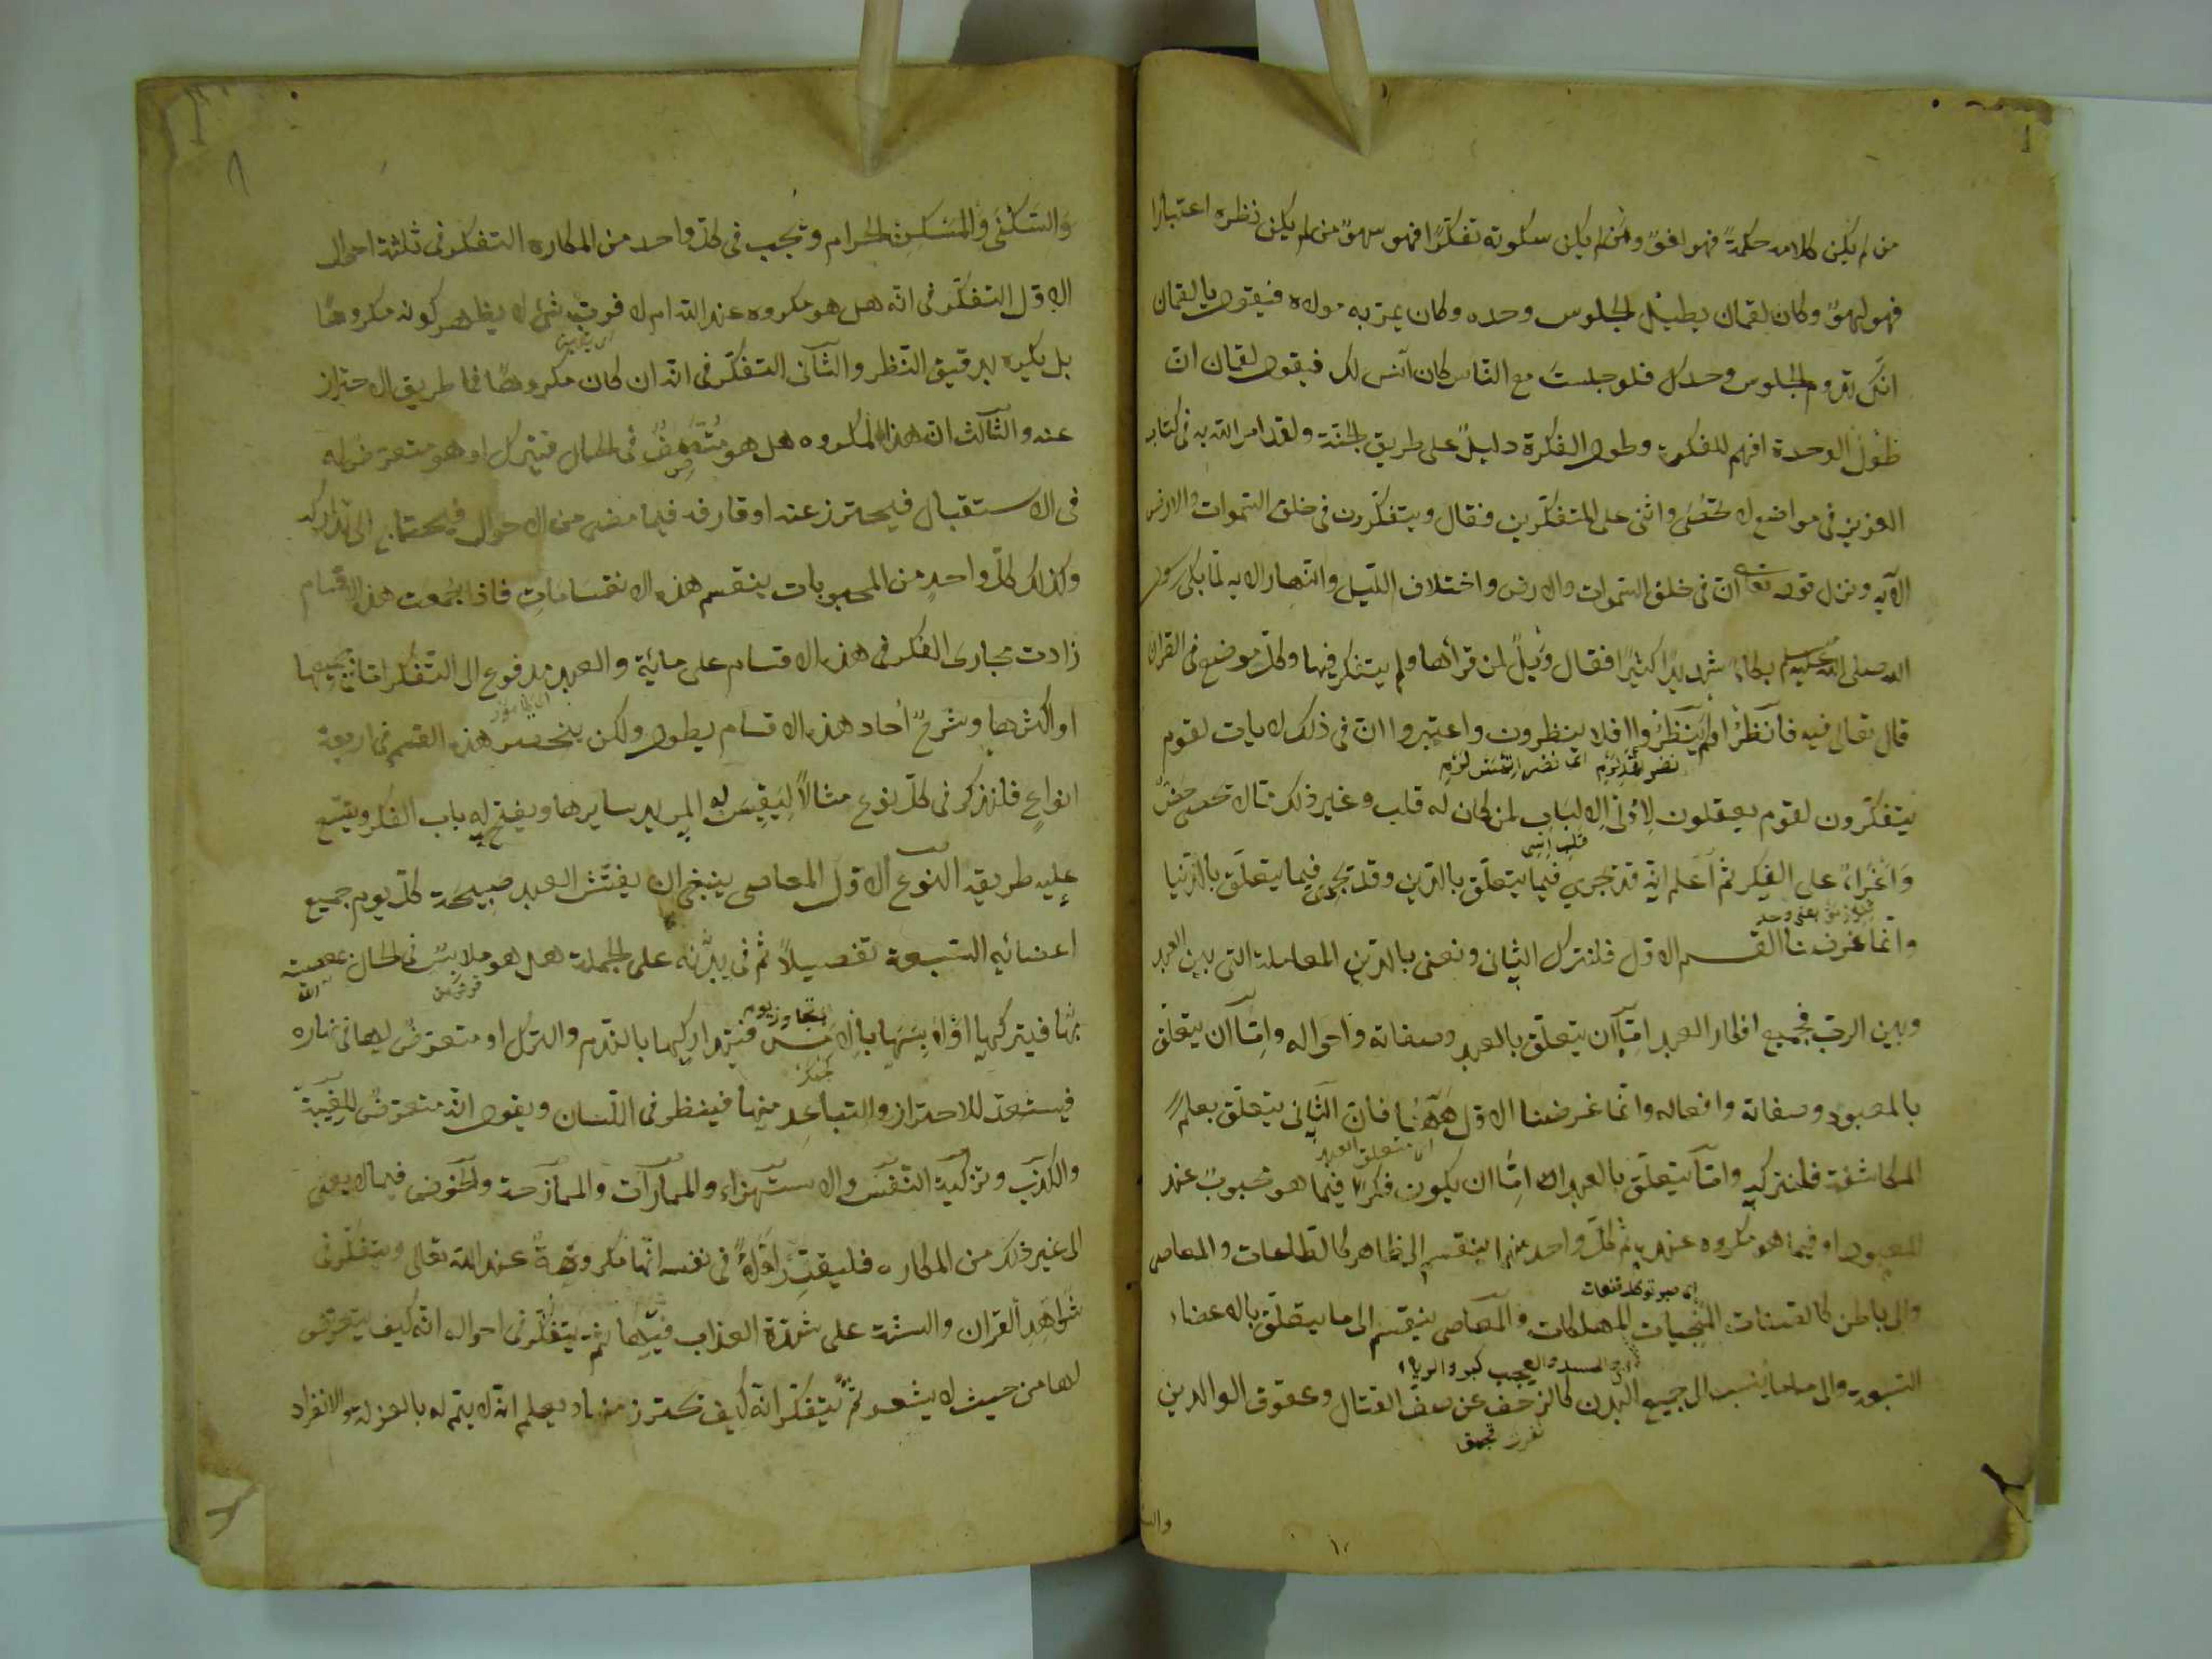 من لم يكن كلامه حكمةً فهو لغوٌ ومن لم يكن سكوته تفكّرًا فهو سهوٌ من لم يكن نظره اعتبارًا
فهو لهوٌ وكان لقمان يطيل الجلوس وحده وكان يمرّ به مولاه فيقول يا لقمان
انّك تديم الجلوس وحدك فلو جلستَ مع النّاس كان آنس لك فيقول لقمان انّ
طُولُ الوحدة افهم للفكرة وطول الفكرة دليلٌ على طريق الجنّة ولقد امر الله به فى كتابه
العزيز فى مواضع لا تحصى واثنى على المتفكّرين فقال ويتفكّرون فى خلق السّموات والارض
الآية ونزل قوله تعالى انّ فى خلق السّموات والارض واختلاف اللّيل والنّهار الاية لمّا بكى رسول
الله صلى الله عليه وسلم بكاءً شديدًا كثيرًا فقال وَيلٌ لمن قرأها ولم يتفكّر فيها وكلّ موضع فى القرآن
قال تعالى فيه فانظر اولم ينظروا افلا ينظرون واعتبروا انّ فى ذلك لايات لقوم
نظر
يتفكّرون لقوم يعقلون لِاُولى الالباب لمن كان له قلب وغير ذلك ممّا لا تحصى حَضٌّ
وَاغراءٌ على الفكر ثمّ اعلم انّه قد يجرى فيما يتعلّق بالدّين وقد يجرى فيما يتعلّق بالدّنيا
وانّما غرضنا القسم الاوّل فلنترك الثّانى ونعنى بالدّين المعاملة التى بين العبد
وبين الربّ فجميع افكار العبد امّا ان يتعلّق بالعبد وصفاته واحواله وامّا ان يتعلّق
بالمعبود وصفاته وافعاله وانّما غرضنا الاوّل ههنا فانّ الثّانى يتعلّق بعلم
اى متعلق العبد
المكاشفة فلنتركه وامّا يتعلّق بالعبد امّا ان يكون فكرًا فيما هو محبوبٌ عند
المعبود او فيما هو مكروه عنده ثمّ كلّ واحد منهما ينقسم الى ظاهر كالطّاعات والمعاصى
والى باطن كالصّفات المنجيات المهلكات والمعاصى ينقسم الى ما يتعلّق بالاعضاء
والحسد والعجب كبر والرياء
السّبعة والى ما ينسب الى جميع البدن كالزحف عن صفّ القتال وعقوق الوالدين
والسّكنى والمسكن الحرام ويجب فى كلّ واحد من المكاره التفكّر فى ثلثة احوال
الاوّل التفكّر فى انّه هل هو مكروه عند الله ام لا فربّ شئ لا يظهر كونه مكروهًا
بل يكره بدقيق النّظر والثّانى التفكّر فى انّه ان كان مكروهًا فما طريق الاحتراز
عنه والثّالث انّ هذا المكروه هل هو متّصفٌ فى الحال فيترك او هو متعرّض له
فى الاستقبال فيحترز عنه او قارفه فيما مضى من الاحوال فيحتاج الى تداركه
وكذلك كلّ واحدٍ من المحبوبات ينقسم هذه الانقسامات فاذا جُمعت هذه الاقسام
زادت مجارى الفكر فى هذه الاقسام على مائة والعبد مدفوع الى التّفكّر امّا فى جميعها
او اكثرها وشرحُ آحاد هذه الاقسام يطول ولكن ينحصر هذا القسم فى اربعة
انواعٍ فلنذكر فى كلّ نوع مثالًا ليقيس به المريد سايرها ويفتح له باب الفكر ويتّسع
عليه طريقه النّوع الاوّل المعاصى ينبغى ان يفتّش العبد صبيحة كلّ يوم جميع
اعضائه السّبعة تفصيلًا ثمّ فى بدنه على الجملة هل هو ملابسٌ فى الحال معصيته
بها فيتركها او لابسها بالامس فيتداركها بالنّدم والترك او متعرّضٌ لها فى نهاره
فيستعدّ للاحتراز والتباعد منها فينظر فى اللّسان ويقول انّه متعرّضٌ للغيبة
والكذب وتزكية النّفس والاستهزاء والممارات والممازحة والخوض فيما لا يعنى
الى غير ذلك من المكاره فليقرّر اوّلًا فى نفسه انّها مكروهةٌ عند الله تعالى ويتفكّر فى
شواهد القرآن والسّنة على شدّة العذاب فيها ثمّ يتفكّر فى احواله انّه كيف يتعرّض
لها من حيث لا يشعر ثمّ يتفكّر انّه كيف تحترز منها ويعلم انّه لا يتمّ له بالعزلة والانفراد